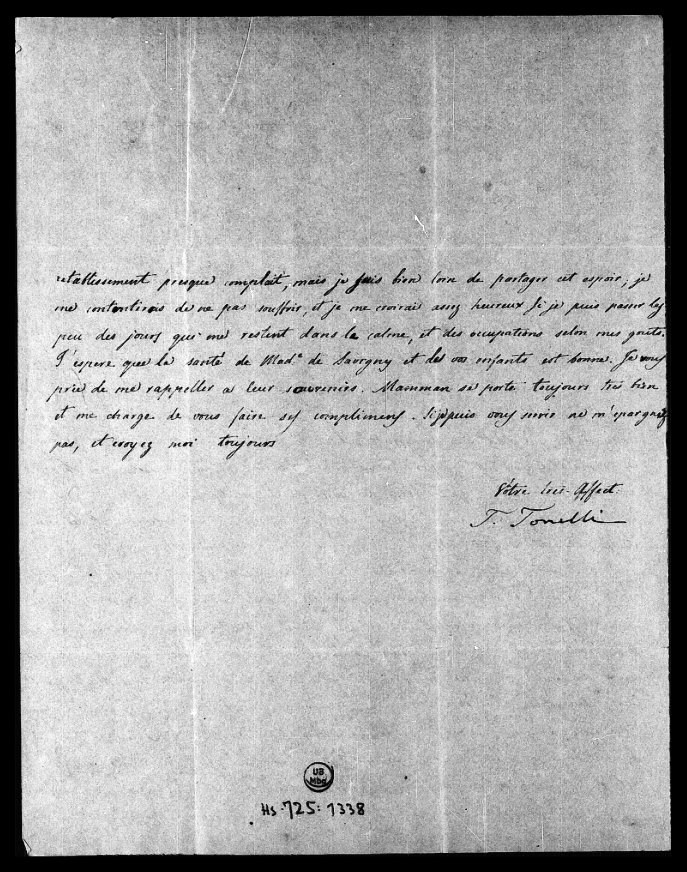 retablissement presque complait, mais je suis bien loin de partager cet espoir; je
me contentirais de ne pas souffrir, et je me croirai assez heureux si je puis passer les
peu des jours qui me restent dans le calme, et des occupations selon mes gouts.
J'espere que la santé de Mad.e de Savigny et de vos enfants est bonne. Je vous
prie de me rappeller a leur souvenirs. Mamman se porte toujours tres bien
et me charge de vous faire ses complimens. Si je puis vous servir ne m'epargnez
pas, et croyez moi toujours
Vôtre tres-Affect.
T. Tonelli
UB
Mbg
Hs. 725: 1338